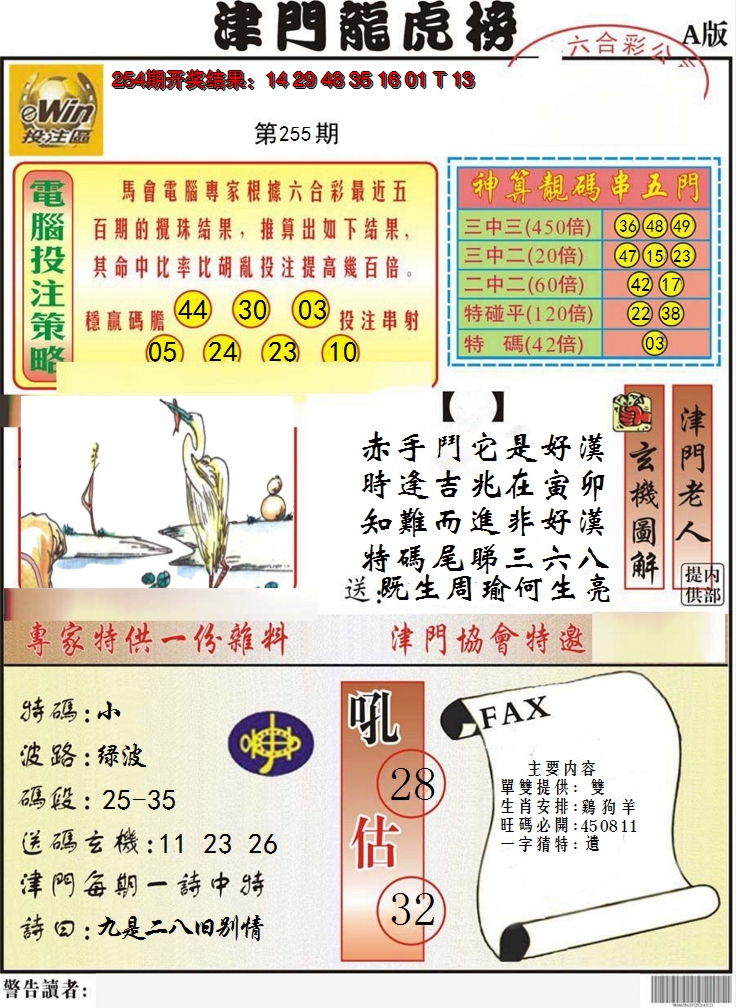 津門龍虎榜
六合彩公
A版
eWin
投注區
254期开奖结果：14 29 48 35 16 01 T 13
第255期
電腦投注策略
馬會電腦專家根據六合彩最近五
百期的攪珠结果，推算出如下结果，
其命中比率比胡亂投注提高幾百倍。
穩贏碼膽 44 30 03 投注串射
05 24 23 10
神算靚碼串五門
三中三(450倍) 36 48 49
三中二(20倍) 47 15 23
二中二(60倍) 42 17
特碰平(120倍) 22 38
特 碼(42倍) 03
【 】
赤手鬥它是好漢
時逢吉兆在寅卯
知難而進非好漢
特碼尾睇三六八
送:既生周瑜何生亮
玄機圖解
津門老人
内部提供
專家特供一份雜料
津門協會特邀
特碼:小
波路:绿波
碼段:25-35
送碼玄機:11 23 26
津門每期一詩中特
詩曰:九是二八旧别情
吼
28
估
32
FAX
主要内容
單雙提供：雙
生肖安排:鷄狗羊
旺碼必開:450811
一字猜特:遺
警告讀者: